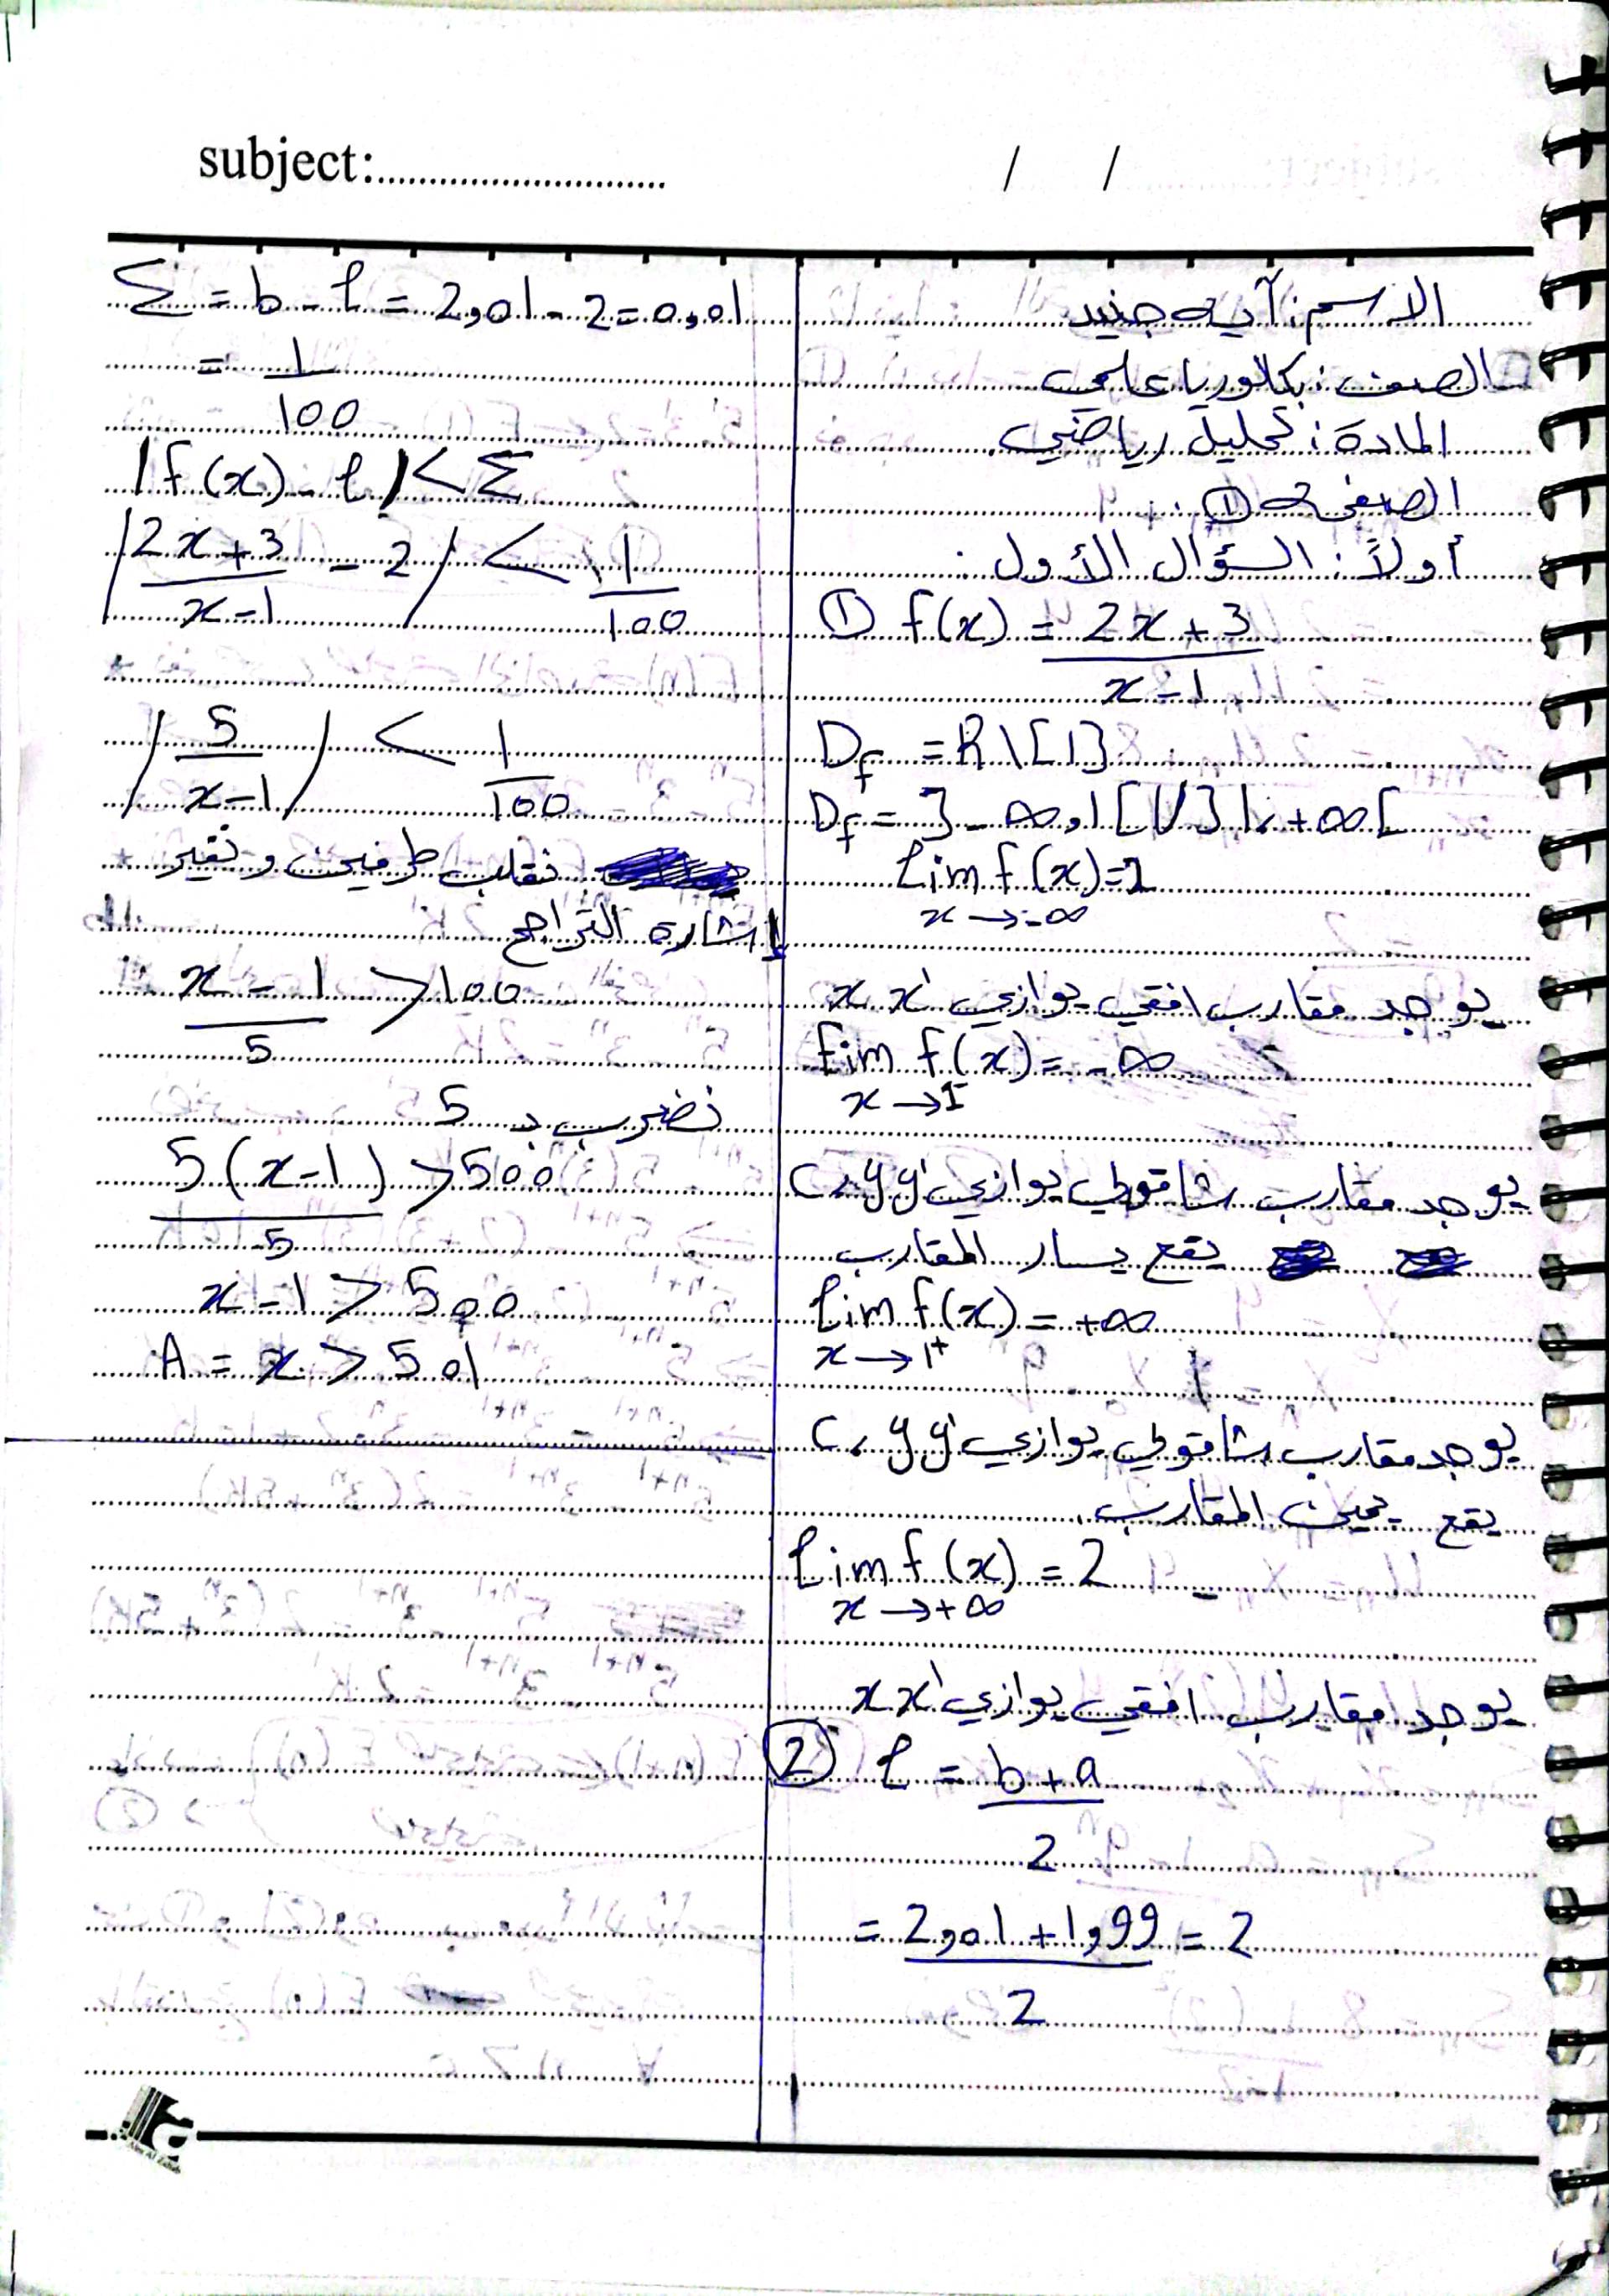 subject:.................................. / /
الاسم: آية جنيد
الصف: بكالوريا علمي
المادة: تحليل رياضي
الصفحة ①
أولاً: السؤال الأول:
① f(x) = 2x+3
x-1
Df = R\[1}
Df = ]-∞,1[∪]1,+∞[
lim f(x)=2
x→-∞
يوجد مقارب افقي يوازي x x'
lim f(x) = -∞
x→1-
يوجد مقارب شاقولي يوازي y y' ، C
يقع يسار المقارب
lim f(x) = +∞
x→1+
يوجد مقارب شاقولي يوازي y y' ، C
يقع يمين المقارب.
lim f(x) = 2
x→+∞
يوجد مقارب افقي يوازي x x'
② l = b+a
2
= 2,01+1,99 = 2
2
Σ = b - l = 2,01 - 2 = 0,01
= 1
100
|f(x) - l| < Σ
|2x+3 - 2| < 1
x-1 100
|5| < 1
x-1 100
نقلب طرفين و نغير
إشارة التراجح
x-1 > 100
5
نضرب بـ 5
5(x-1) > 500
5
x-1 > 500
A = x > 501